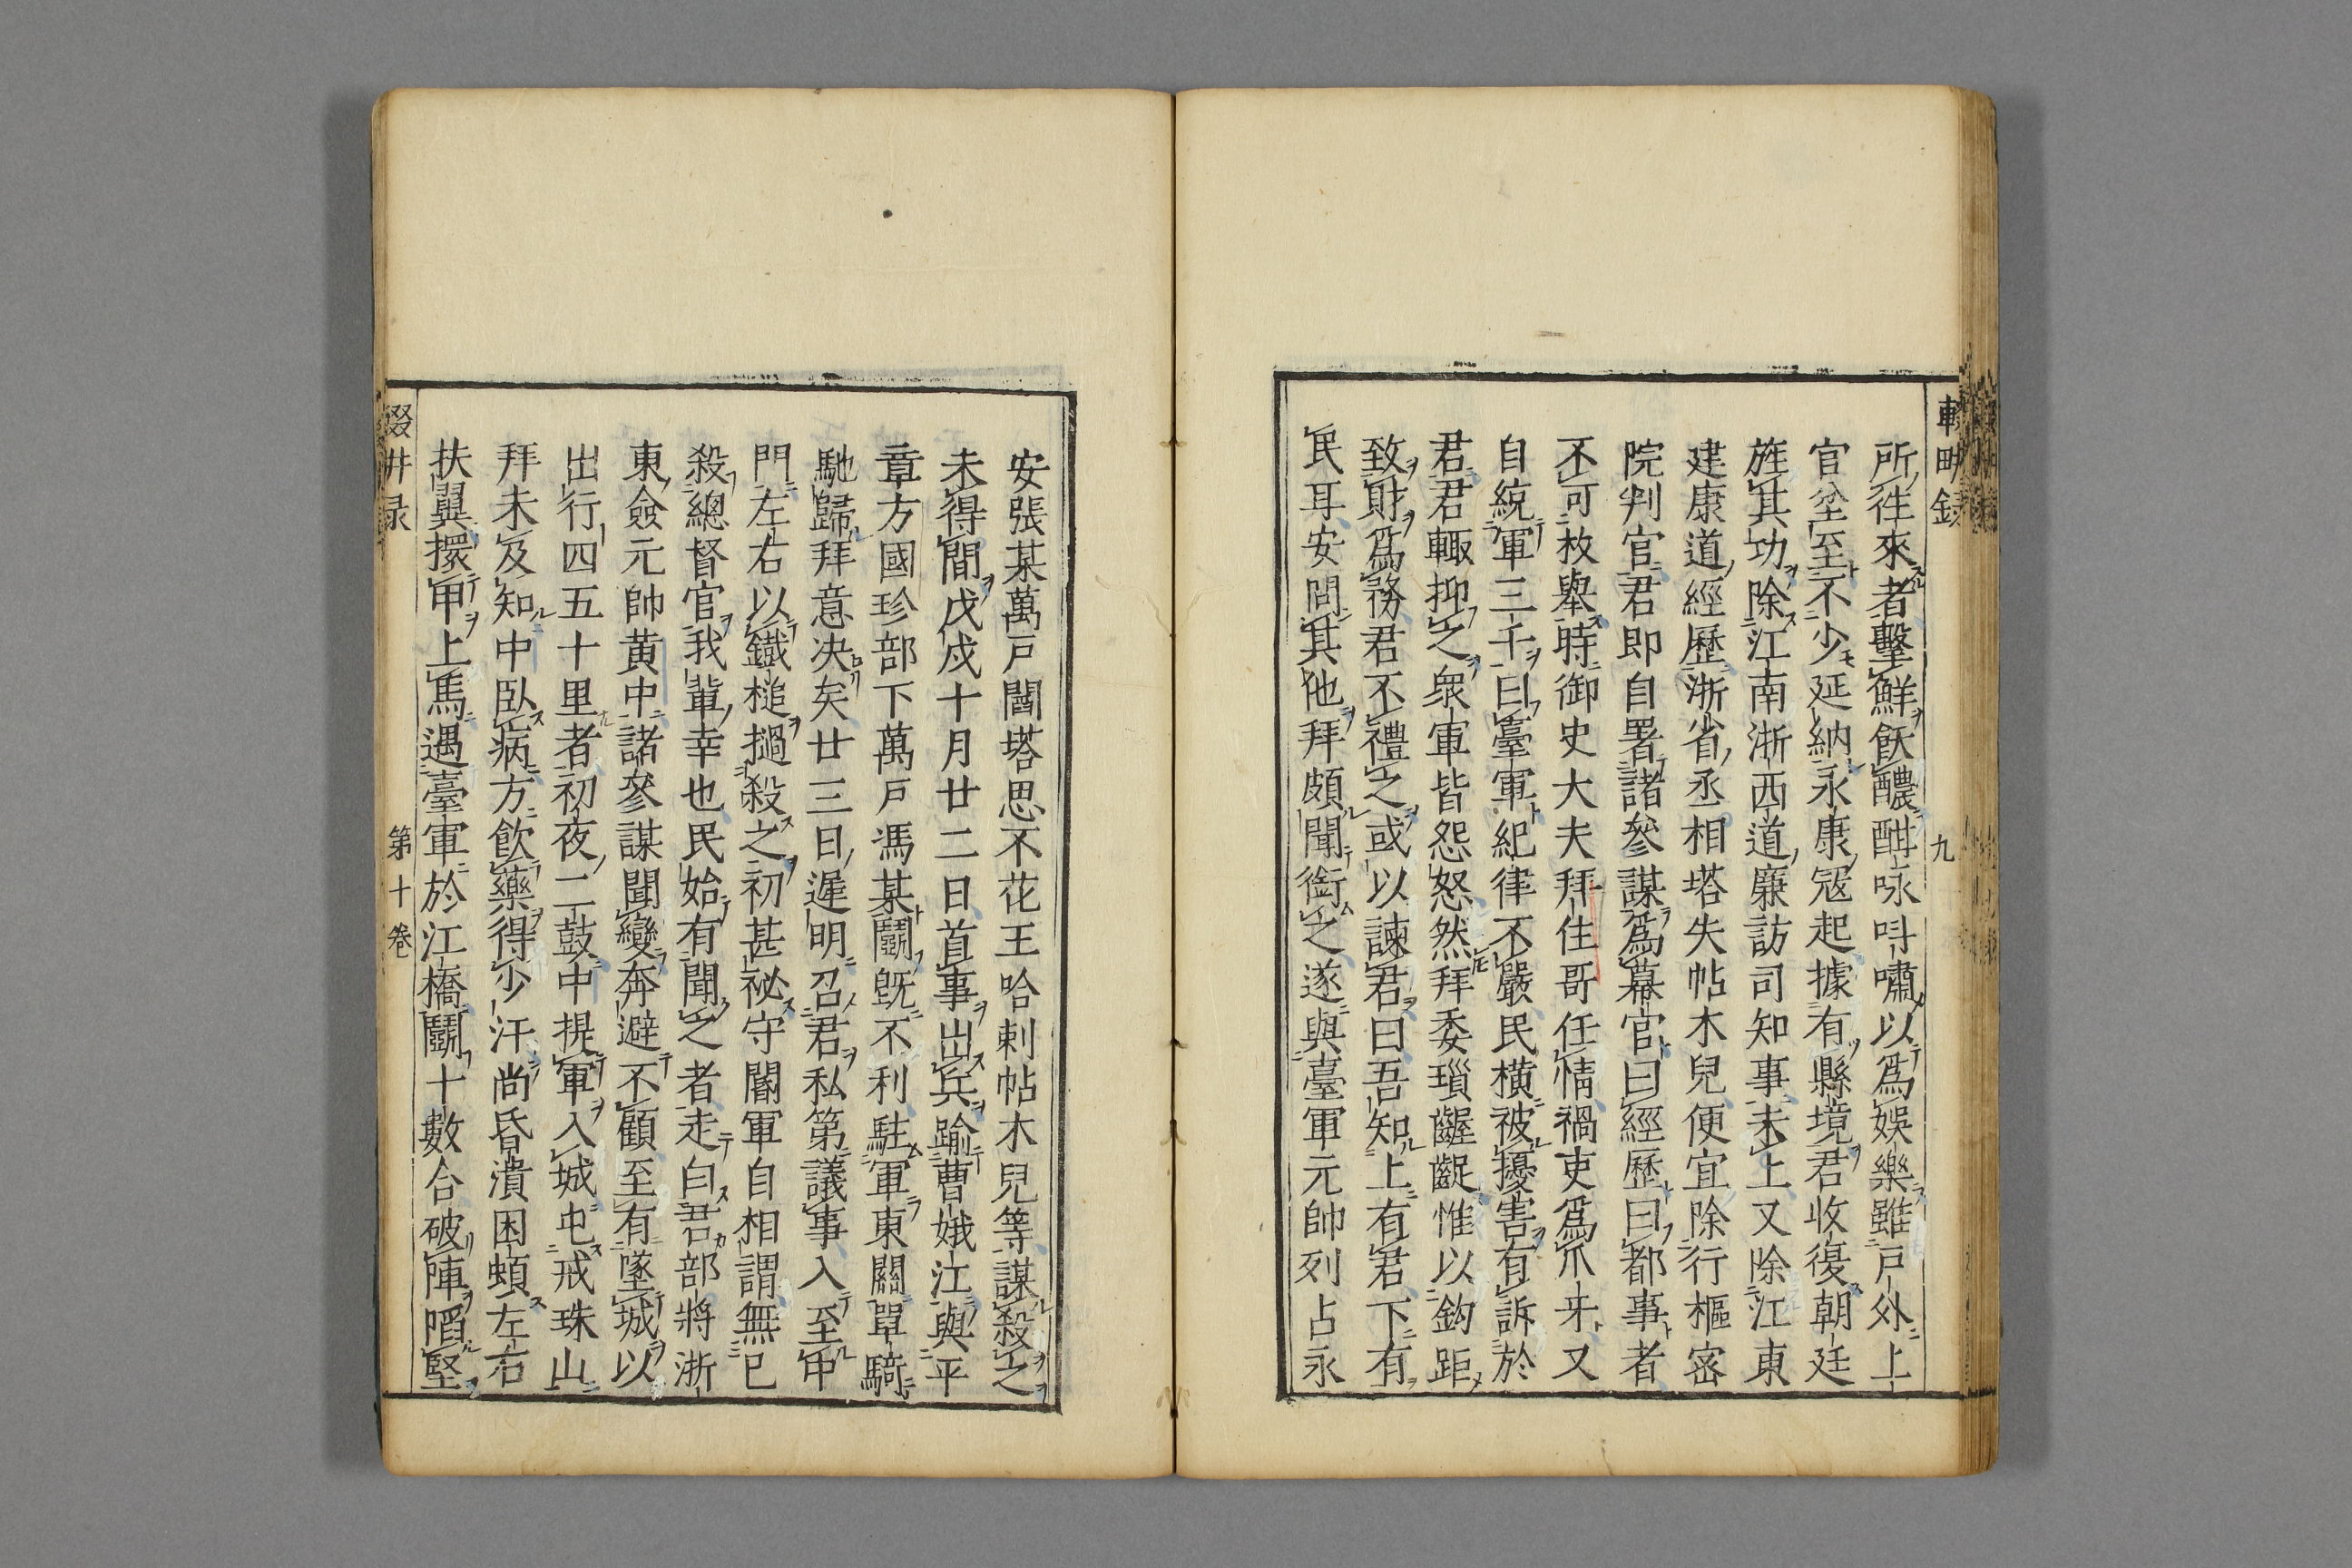 所往來者擊鮮飲醲酣咏呌嘯以爲娛樂雖戸外上
官坌至不少延納永康冦起據有縣境君收復朝廷
旌其功除江南浙西道廉訪司知事未上又除江東
建康道經歷浙省丞相塔失帖木兒便宜除行樞宻
院判官君即自署諸叅謀爲幕官曰經歷曰都事者
不可枚舉時御史大夫拜住哥任情禍吏爲爪牙又
自統軍三千曰臺軍紀律不嚴民橫被擾害有訴於
君君輙抑之衆軍皆怨怒然拜委瑣齷齪惟以鈎距
致財爲務君不禮之或以諫君君曰吾知上有君下有
民耳安問其他拜頗聞銜之遂與臺軍元帥列占永
安張某萬戸閭塔思不花王哈剌帖木兒等謀殺之
未得間戊戌十月廿二日首事出兵踰曹娥江與平
章方國珍部下萬戸馮某鬬旣不利駐軍東關單騎
馳歸拜意决矣廿三日遲明召君私第議事入至中
門左右以鐵槌撾殺之初甚祕守閽軍自相謂無巳
殺總督官我軰幸也民始有聞之者走白君部將浙
東僉元帥黄中諸叅謀聞變奔避不顧至有墜城以
出行四五十里者初夜二鼓中提軍入城屯戒珠山
拜未及知中臥病方飲藥得少汗尚昏潰困頓左右
扶翼擐甲上馬遇臺軍於江橋鬬十數合破陣䧟堅
輟畊錄
九
第十卷